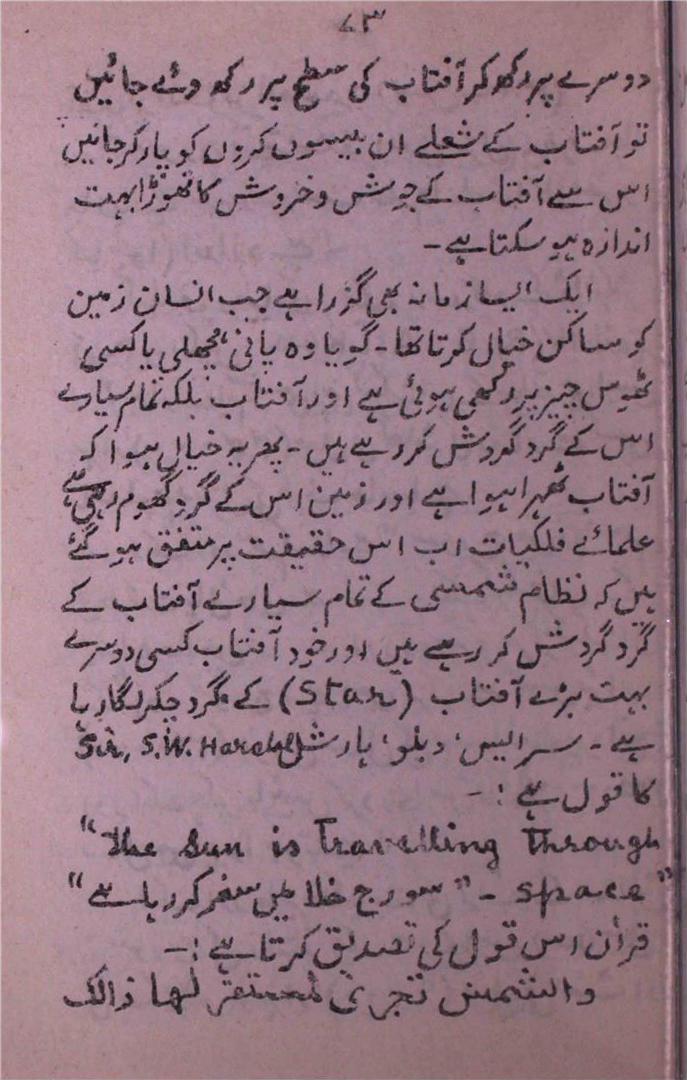 ۷۳
دوسرے پر رکھ کر آفتاب کی سطح پر رکھ دئے جائیں
تو آفتاب کے شعلے ان بیسوں کروں کو پار کر جائیں
اس سے آفتاب کے جوش و خروش کا تھوڑا بہت
اندازہ ہو سکتا ہے -
ایک ایسا زمانہ بھی گزرا ہے جب انسان زمین
کو ساکن خیال کرتا تھا - گویا وہ پانی، مچھلی یا کسی
ٹھوس چیز پر رکھی ہوئی ہے اور آفتاب بلکہ تمام سیارے
اس کے گرد گردش کر رہے ہیں - پھر یہ خیال ہوا کہ
آفتاب ٹھہرا ہوا ہے اور زمین اس کے گرد گھوم رہی ہے
علمائے فلکیات اب اس حقیقت پر متفق ہو گئے
ہیں کہ نظام شمسی کے تمام سیارے آفتاب کے
گرد گردش کر رہے ہیں اور خود آفتاب کسی دوسرے
بہت بڑے آفتاب (Star) کے گرد چکر لگا رہا
ہے - سر ایس، ڈبلو، ہارشل Sir, S.W.
کا قول ہے :-
"The Sun is Travelling Through
space" - "سورج خلا میں سفر کر رہا ہے"
قرآن اس قول کی تصدیق کرتا ہے :-
والشمس تجری لمستقر لها ذالک